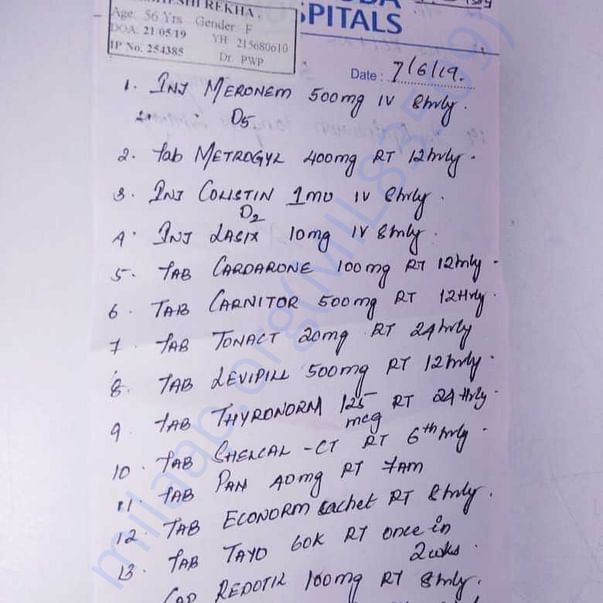 HESHI REKHA.
Age: 56 Yrs Gender F
DOA: 21/05/19 YH 215680610
IP No. 254385 Dr. PWP
SPITALS
Date: 7/6/19.
1. INJ MERONEM 500mg IV 8hrly.
D5.
2. Tab METROGYL 400mg RT 12hrly.
3. INJ COLISTIN 1mu IV 8hrly.
D2
4. INJ LASIX 10mg IV 8hrly.
5. TAB CARDARONE 100mg RT 12hrly.
6. TAB CARNITOR 500mg RT 12Hrly.
7. TAB TONACT 20mg RT 24hrly
8. TAB LEVIPILL 500mg RT 12hrly.
9. TAB THYRONORM 125 mcg RT 24Hrly.
10. TAB SHELCAL-CT RT 6th hrly.
11. TAB PAN 40mg RT 7am
12. TAB ECONORM sachet RT 8hrly.
13. TAB TAYO 60K RT once in
2wks.
CAP REDOTIL 100mg RT 8hrly.
milaap.org(MIL83559)